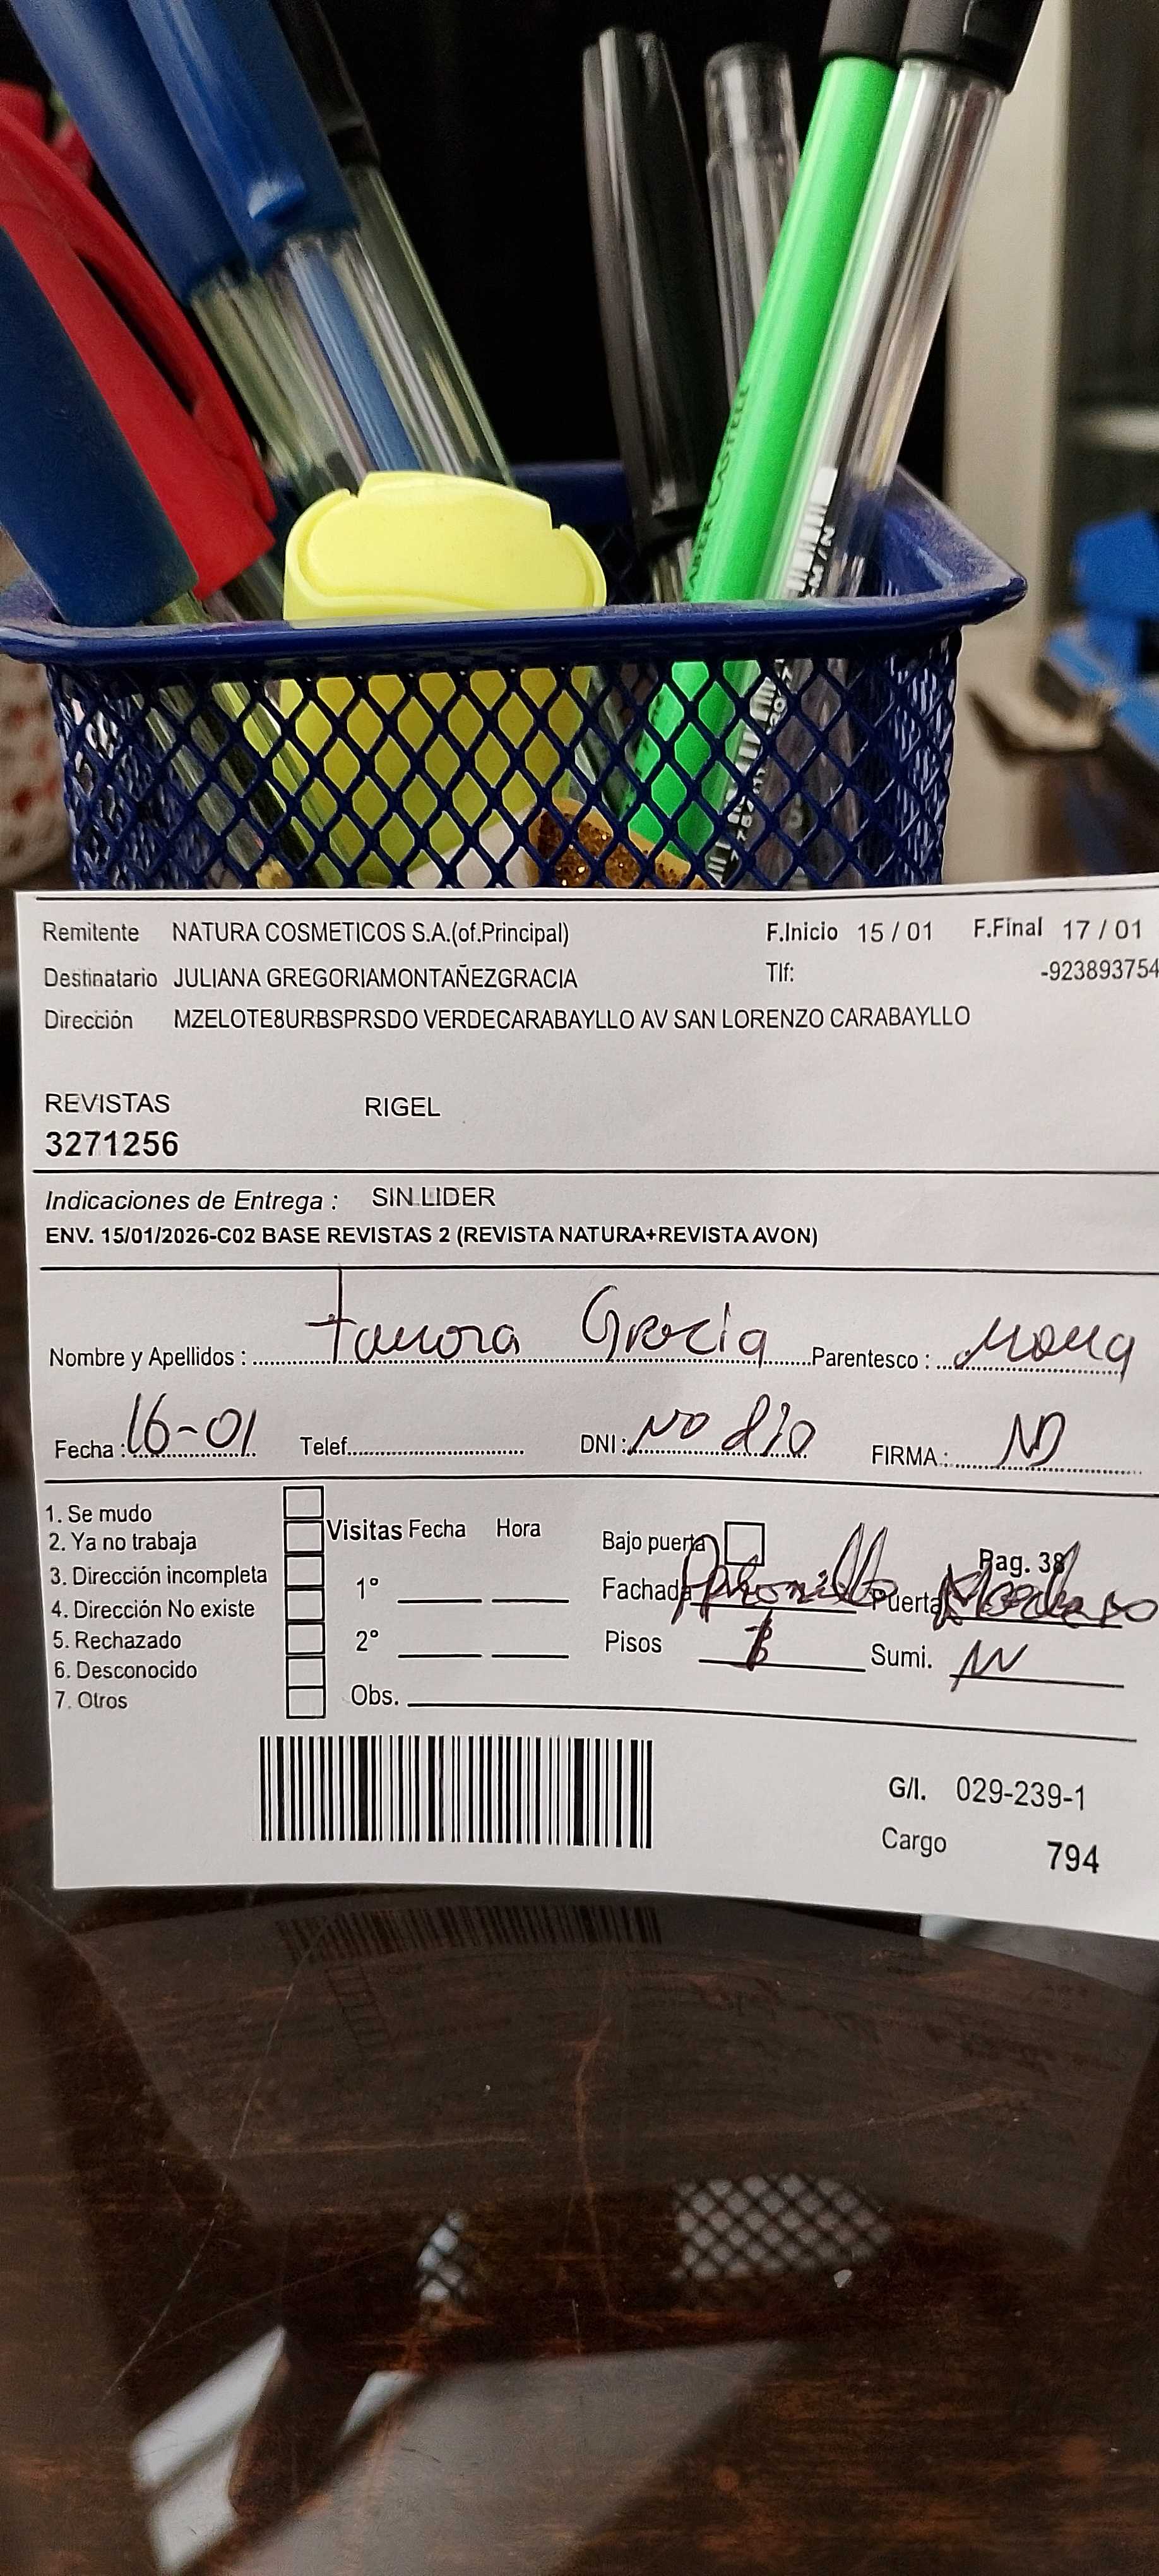 FABER CASTELL
Remitente NATURA COSMETICOS S.A.(of.Principal) F.Inicio 15 / 01 F.Final 17 / 01
Destinatario JULIANA GREGORIAMONTAÑEZGRACIA Tlf: -923893754
Dirección MZELOTE8URBSPRSDO VERDECARABAYLLO AV SAN LORENZO CARABAYLLO
REVISTAS RIGEL
3271256
Indicaciones de Entrega : SIN LIDER
ENV. 15/01/2026-C02 BASE REVISTAS 2 (REVISTA NATURA+REVISTA AVON)
Nombre y Apellidos : Gracia Parentesco :
Fecha : 16-01 Telef. DNI : NO dio FIRMA :
1. Se mudo
2. Ya no trabaja
3. Dirección incompleta
4. Dirección No existe
5. Rechazado
6. Desconocido
7. Otros
Visitas Fecha Hora
1°
2°
Obs.
Bajo puerta Pag. 38
Fachada Puerta
Pisos Sumi.
G/I. 029-239-1
Cargo 794